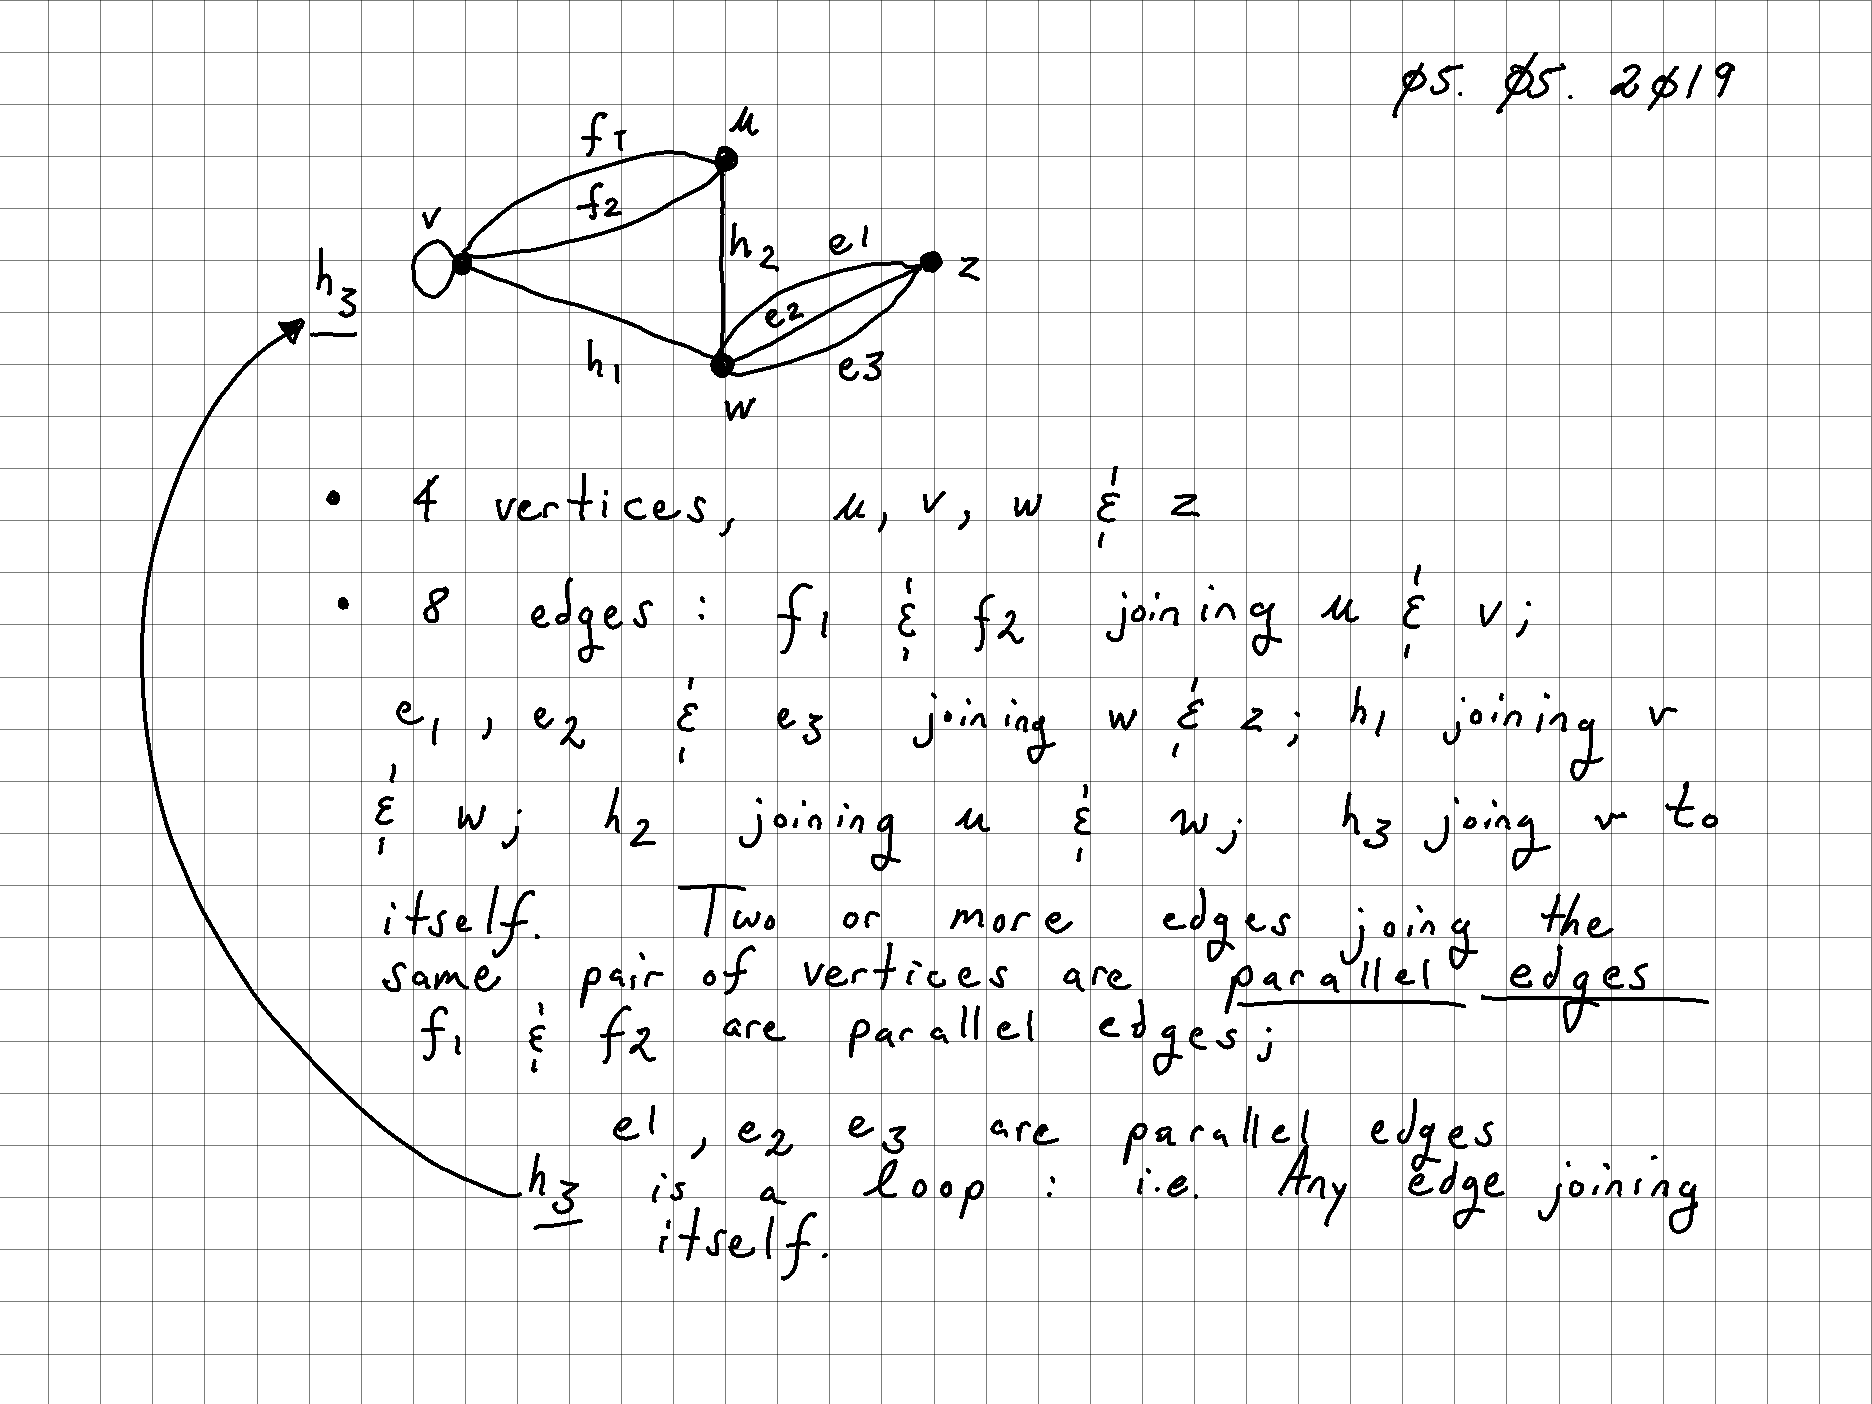 ø5. ø5. 2ø19
u
f1
f2
v
h2
e1
z
h3
e2
h1
e3
w
• 4 vertices, u, v, w & z
• 8 edges : f1 & f2 joining u & v;
e1, e2 & e3 joining w & z; h1 joining v
& w; h2 joining u & w; h3 joing v to
itself. Two or more edges joing the
same pair of vertices are parallel edges
f1 & f2 are parallel edges;
e1, e2 e3 are parallel edges
h3 is a loop : i.e. Any edge joining
itself.